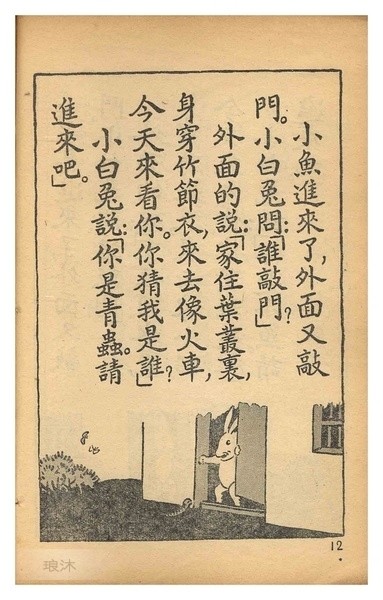 小魚進來了,外面又敲
門。小白兔問:「誰敲門?」
外面的說:「家住葉叢裏,
身穿竹節衣,來去像火車,
今天來看你。你猜我是誰?」
小白兔說:「你是青蟲。請
進來吧。」
12
琅沐